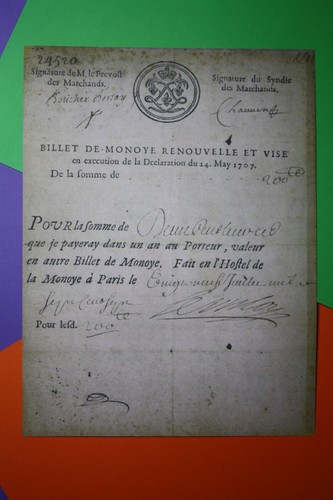 24520
Signature de M. le Prevost
des Marchands.
Signature du Syndic
des Marchands.
Boucher Dorsay
BILLET DE MONOYE RENOUVELLE ET VISE
en execution de la Declaration du 24. May 1707.
De la somme de 200
POUR la somme de Deux cens livres
que je payeray dans un an au Porteur, valeur
en autre Billet de Monoye. Fait en l'Hostel de
la Monoye à Paris le
Pour lesd. 200